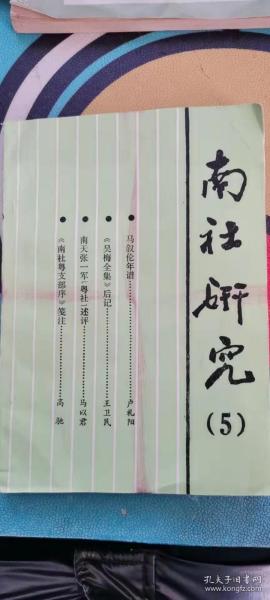 南社研究
(5)
●马叙伦年谱……………………卢礼阳
●《吴梅全集》后记……………………王卫民
●南天张一军(粤社)述评……………………马以君
●《南社粤支部序》笺注……………………高驰
孔夫子旧书网